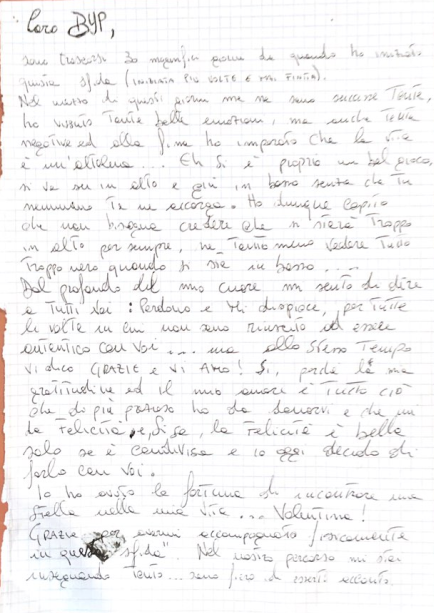 Caro BYP,
sono trascorsi 30 magnifici giorni da quando ho iniziato
questa sfida (INIZIATA PIÙ VOLTE E MAI FINITA).
Nel corso di questi giorni me ne sono successe Tante,
ho vissuto Tante belle emozioni, ma anche Tante
negative ed alla fine ho imparato che la vita
è un'altalena... Eh si è proprio un bel gioco,
si va su in alto e giù in basso senza che Tu
nemmeno Te ne accorga. Ho dunque capito
che non bisogna credere che si starà Troppo
in alto per sempre, ne Tantomeno vedere Tutto
Troppo nero quando si sta in basso....
Dal profondo del mio cuore mi sento di dire
a Tutti voi: Perdono e Mi dispiace, per Tutte
le volte in cui non sono riuscito ad essere
autentico con voi.... ma allo stesso Tempo
vi dico GRAZIE e VI AMO! Si, perché la mia
gratitudine ed il mio amore è Tutto ciò
che di più prezioso ho da donarvi e che mi
la Felicità e, si sa, la Felicità è bella
solo se è condivisa e io oggi decido di
farlo con voi.
Io ho avuto la fortuna di incontrare una
stella nella mia vita... Valentina!
GRAZIE per avermi accompagnato fisicamente
in questa "sfida". Nel nostro percorso mi stai
insegnando Tanto... sono fiero di esserti accanto.